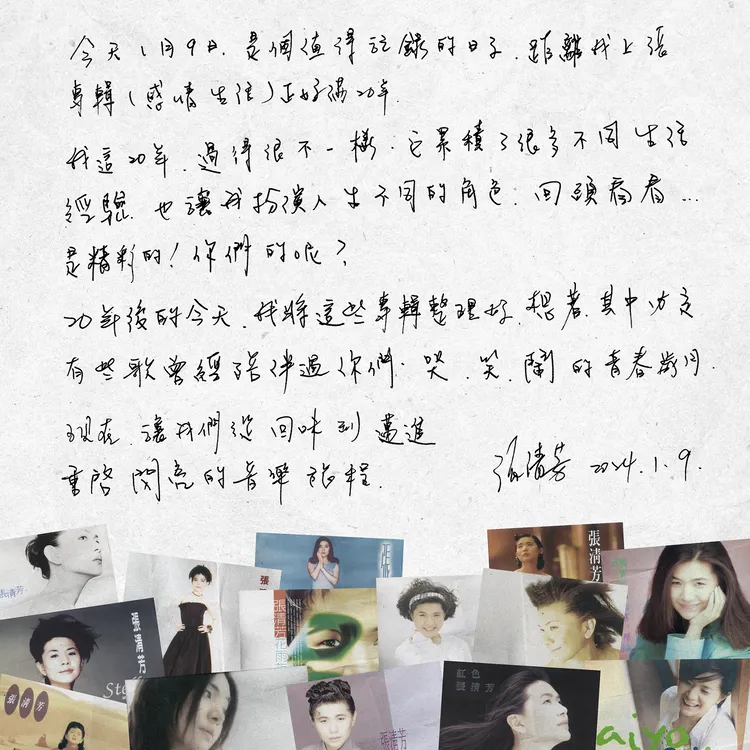 今天1月9日,是個值得記錄的日子,距離我上張
專輯(感情生活)正好滿20年.
我這20年,過得很不一樣.它累積了很多不同生活
經驗.也讓我扮演人生不同的角色.回頭看看...
是精彩的!你們的呢?
20年後的今天,我將這些專輯整理好,想著,其中應該
有些歌曾經陪伴過你們.哭.笑.鬧的青春歲月.
現在,讓我們從回味到邁進
重啓閃亮的音樂旅程.
張清芳 2024.1.9.
張清芳
張清芳
張清芳
張清芳
張清芳
張清芳花雨
張清芳
紅色
張清芳
張清芳
張清芳
aiyo